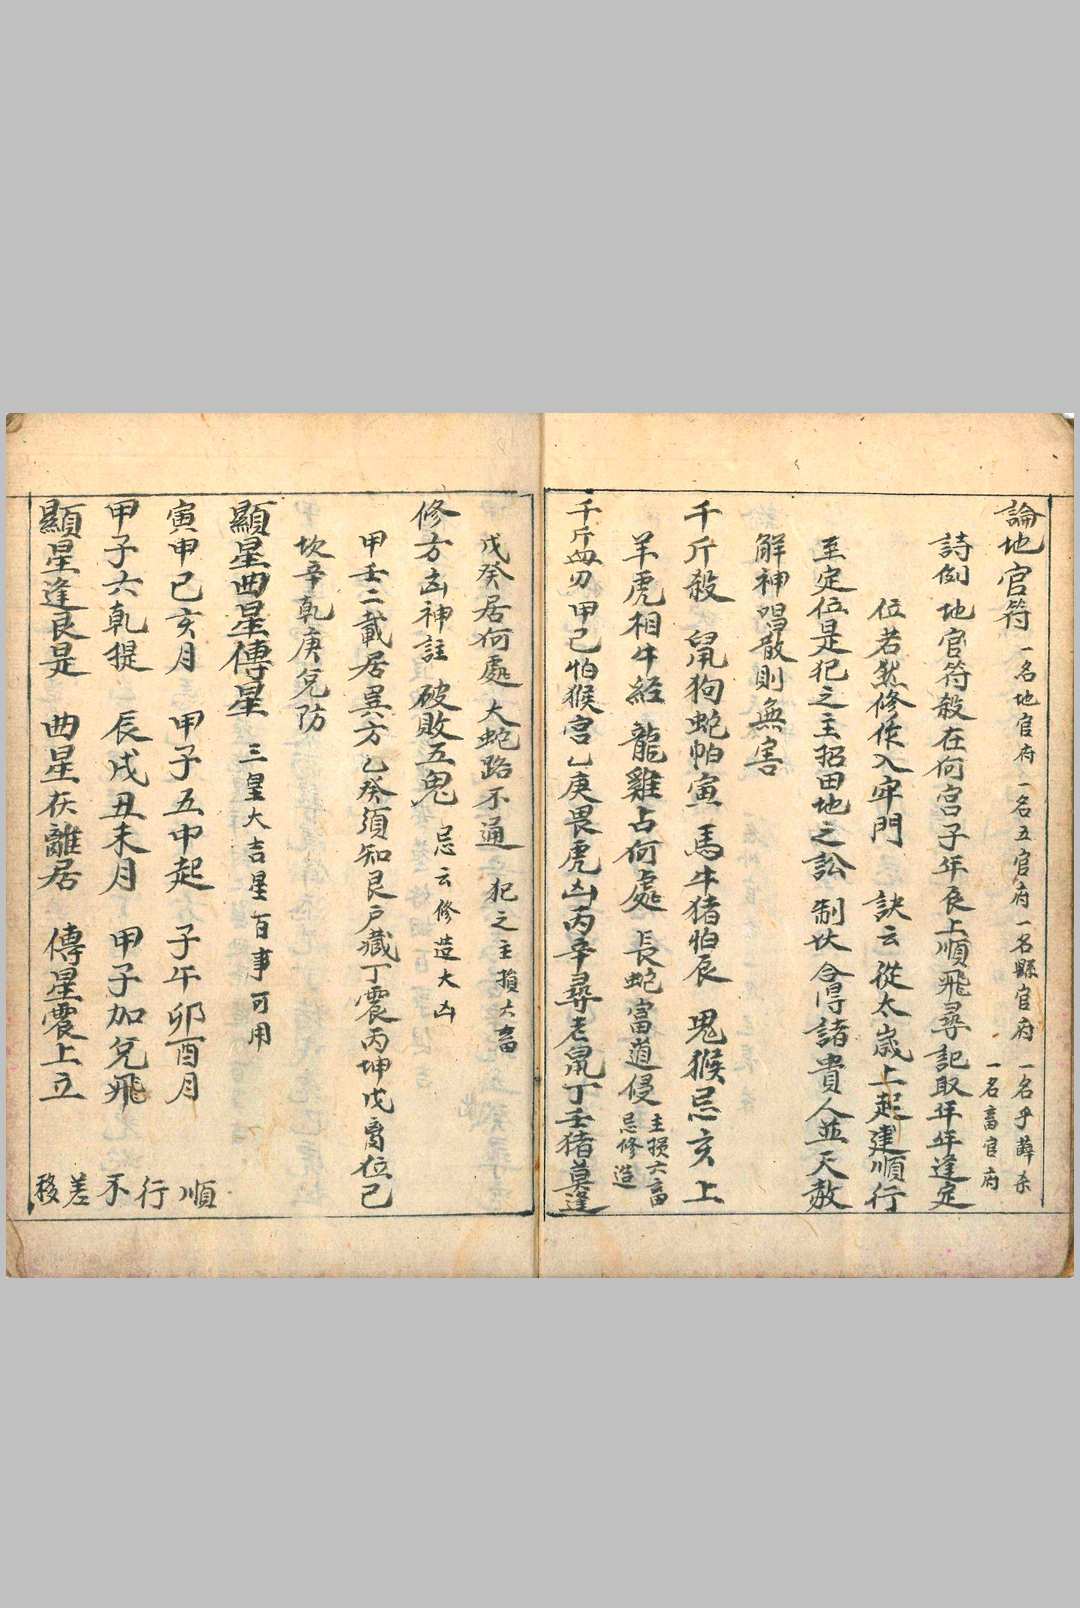 論地官符 一名地官府 一名五官府 一名縣官府 一名乎薜杀 一名畜官府
詩例 地官符殺在何宮子年辰上順飛尋記取年年逢定
位若煞修作入牢門 訣云從太歲上起建順行
至定位是犯之主招田地之訟 制伏 會得諸貴人並天赦
解神唱散則無害
千斤殺 鼠狗蛇怕寅 馬牛猪怕辰 兎猴忌亥上
羊虎相牛經 龍雞占何處 長蛇當道侵 主損六畜 忌修造
千斤血刃 甲己怕猴宮乙庚畏虎凶丙辛尋老鼠丁壬猪莫逢
戊癸居何處 大蛇路不通 犯之主損六畜
修方凶神註 破敗五鬼 忌云修造大凶
甲壬二載居巽方乙癸須知艮戶藏丁震丙坤戊离位己
坎辛乾庚兌防
顯星曲星傳星 三皇大吉星百事可用
寅申巳亥月 甲子五中起 子午卯酉月
甲子六乾提 辰戌丑未月 甲子加兌飛
顯星逢艮是 曲星在離居 傳星震上立
順行不差移